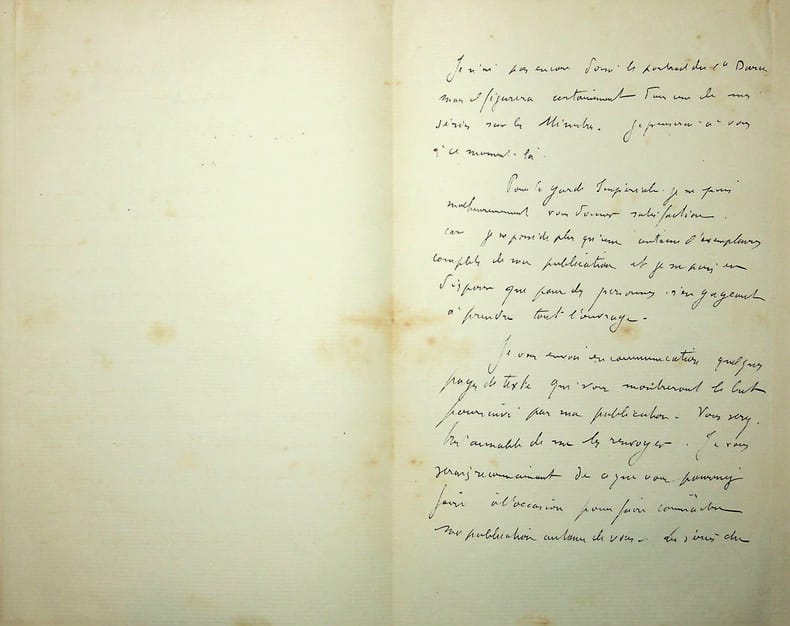 Je n'ai pas encore donné le portrait du Cte Daru
mais il figurera certainement dans une de mes
séries sur les Ministres. Je penserai à vous
à ce moment-là.
Pour la garde Impériale je ne puis
malheureusement vous donner satisfaction.
car je ne possède plus qu'une centaine d'exemplaires
complets de ma publication et je ne puis en
disposer que pour des personnes s'engageant
à prendre tout l'ouvrage.
Je vous envoie en communication quelques
pages de texte qui vous montreront le but
poursuivi par ma publication. Vous serez
bien aimable de me les renvoyer. Je vous
serais reconnaissant de ce que vous pourrez
faire à l'occasion pour faire connaître
ma publication autour de vous. Les séries du